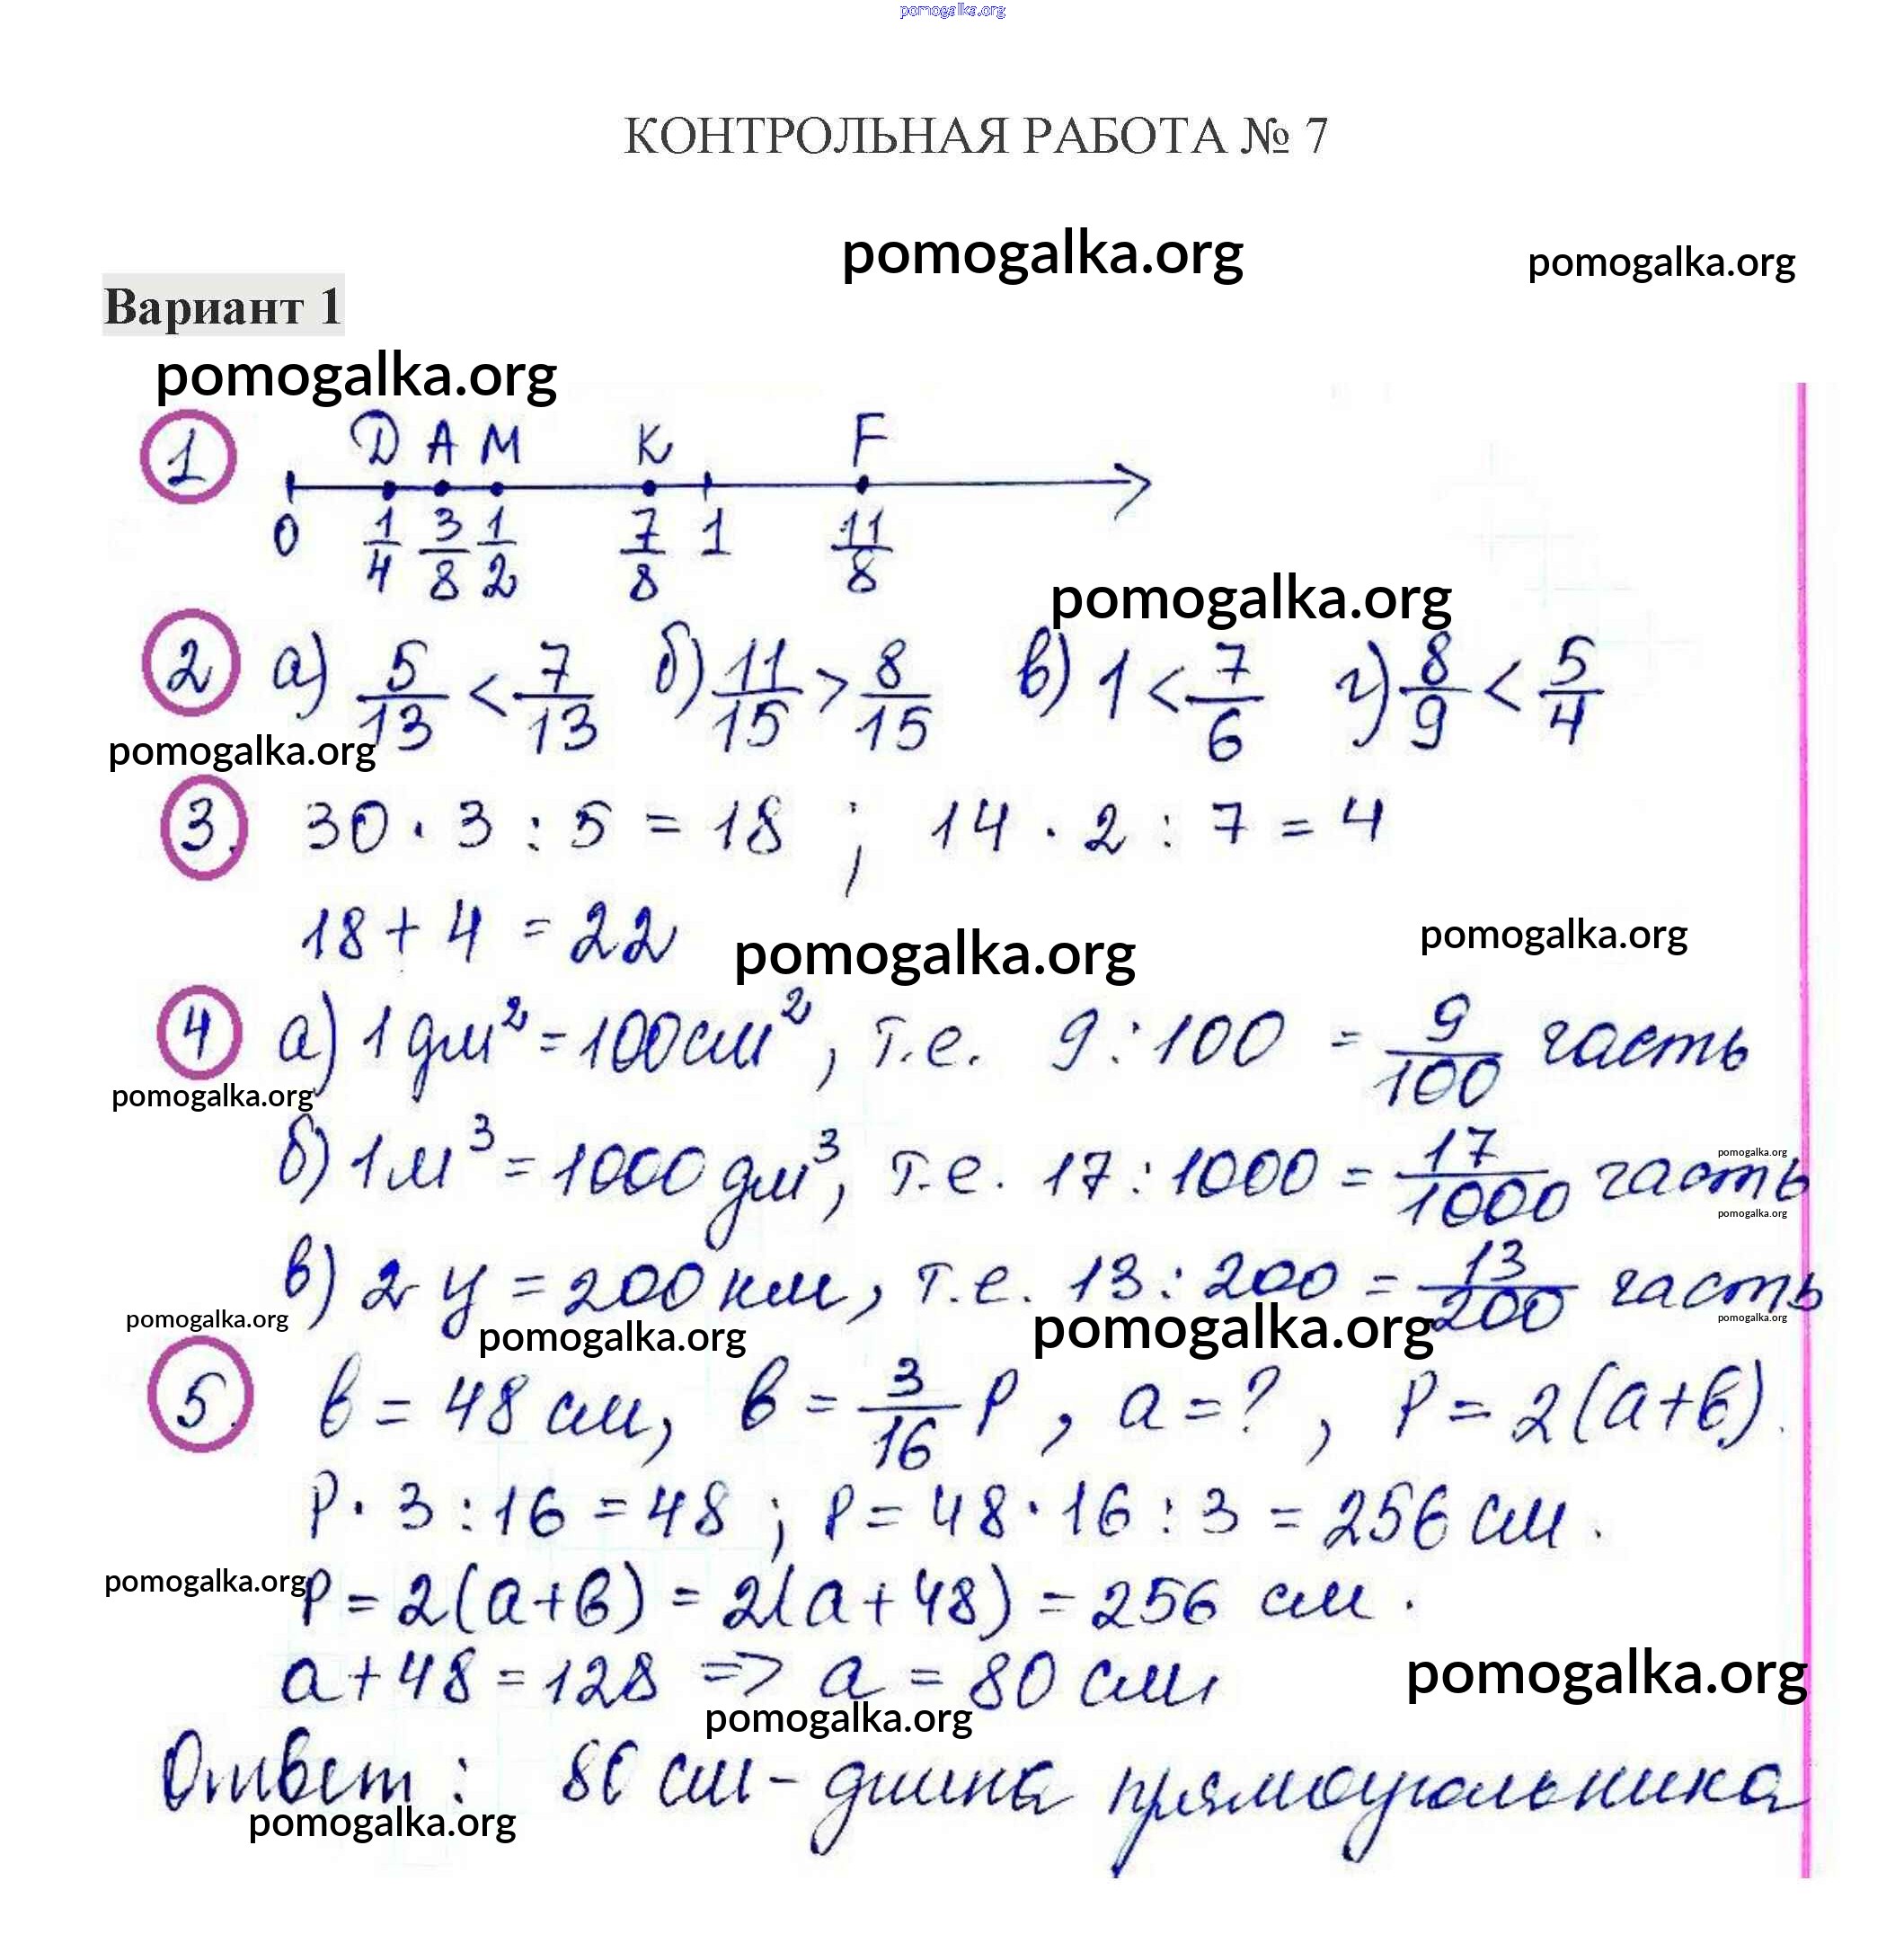 pomogalka.org
КОНТРОЛЬНАЯ РАБОТА № 7
pomogalka.org pomogalka.org
Вариант 1
pomogalka.org
1 D A M K F
0 1/4 3/8 1/2 7/8 1 11/8
pomogalka.org
2 а) 5/13 < 7/13 б) 11/15 > 8/15 в) 1 < 7/6 г) 8/9 < 5/4
pomogalka.org
3. 30 · 3 : 5 = 18 ; 14 · 2 : 7 = 4
18 + 4 = 22
pomogalka.org pomogalka.org
4 а) 1 дм² = 100 см², т.е. 9 : 100 = 9/100 часть
pomogalka.org
б) 1 м³ = 1000 дм³, т.е. 17 : 1000 = 17/1000 часть
pomogalka.org
pomogalka.org
в) 2 ц = 200 км, т.е. 13 : 200 = 13/200 часть
pomogalka.org pomogalka.org pomogalka.org pomogalka.org
5. в = 48 см, в = 3/16 Р, а = ?, Р = 2(а+в).
Р · 3 : 16 = 48 ; Р = 48 · 16 : 3 = 256 см.
pomogalka.org
Р = 2(а+в) = 2(а+48) = 256 см.
а + 48 = 128 => а = 80 см,
pomogalka.org
pomogalka.org
Ответ: 80 см - длина прямоугольника
pomogalka.org